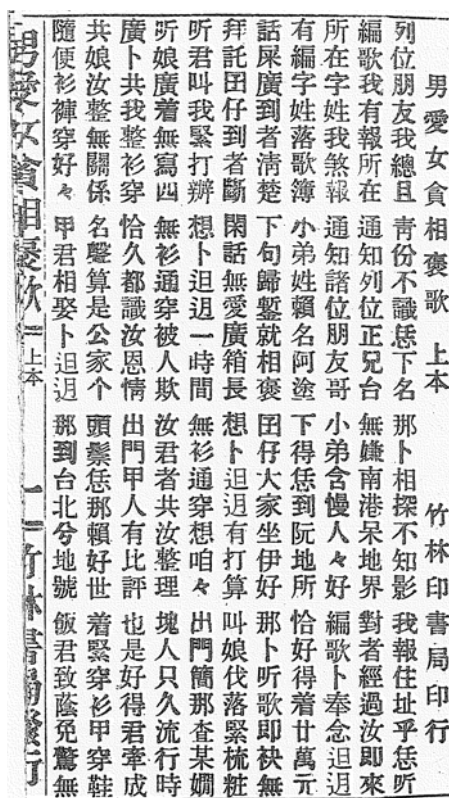 男愛女貪相褒歌　上本　竹林印書局印行
列位朋友我總且　青份不識恁下名　那卜相探不知影　我報住址乎恁听
編歌我有報所在　通知列位正兄台　無嫌南港呆地界　對者經過汝即來
所在字姓我煞報　通知諸位朋友哥　小弟含慢人々好　編歌卜奉念迌迌
有編字姓落歌簿　小弟姓賴名阿塗　下得恁到阮地所　恰好得着廿萬元
話屎廣到者清楚　下句歸就相褒　囝仔大家坐伊好　那卜听歌即袂無
拜託囝仔到者斷　閑話無愛廣箱長　想卜迌迌有打算　叫娘伐落緊梳粧
听君叫我緊打辦　想卜迌迌一時間　無衫通穿想咱々　出門簡那查某嫺
听娘廣着無寫四　無衫通穿被人欺　汝君者共汝整理　塊人只久流行時
廣卜共我整衫穿　恰久都識汝恩情　出門甲人有比評　也是好得君牽成
共娘汝整無關係　名聲算是公家个　頭鬃恁那賴好世　着緊穿衫甲穿鞋
隨便衫褲穿好々　甲君相娶卜迌迌　那到台北兮地號　飯君致蔭免驚無
男愛女貪相褒歌　上本　一　竹林書局發行